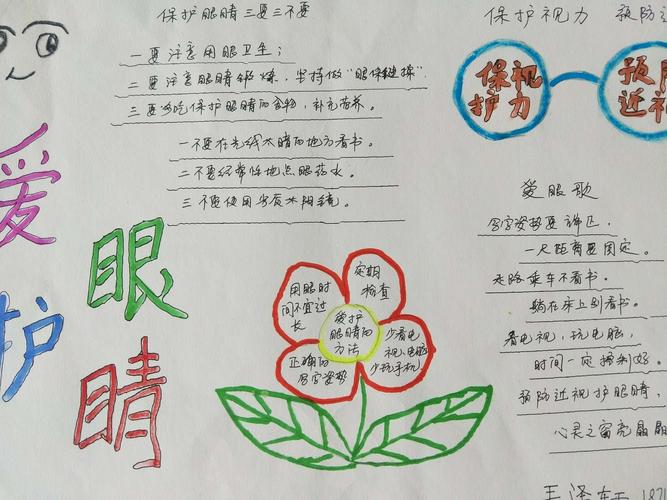 保护眼睛三要三不要
一要注意用眼卫生；
二要注意眼睛锻炼，坚持做“眼保健操”.
三要多吃保护眼睛的食物，补充营养。
一不要在光线太暗的地方看书。
二不要经常性地点眼药水。
三不要使用劣质太阳镜。
爱护
眼睛
用眼时
间不宜过
长
定期
检查
爱护
眼睛的
方法
正确的
写字姿势
少看电
视、电脑
少玩手机
保护视力 预防近
保视
护力
预防
近视
爱眼歌
写字姿势要端正，
一尺距离要固定。
走路乘车不看书。
躺在床上别看书。
看电视，玩电脑，
时间一定控制好。
预防近视护眼睛，
心灵之窗亮晶晶
王泽